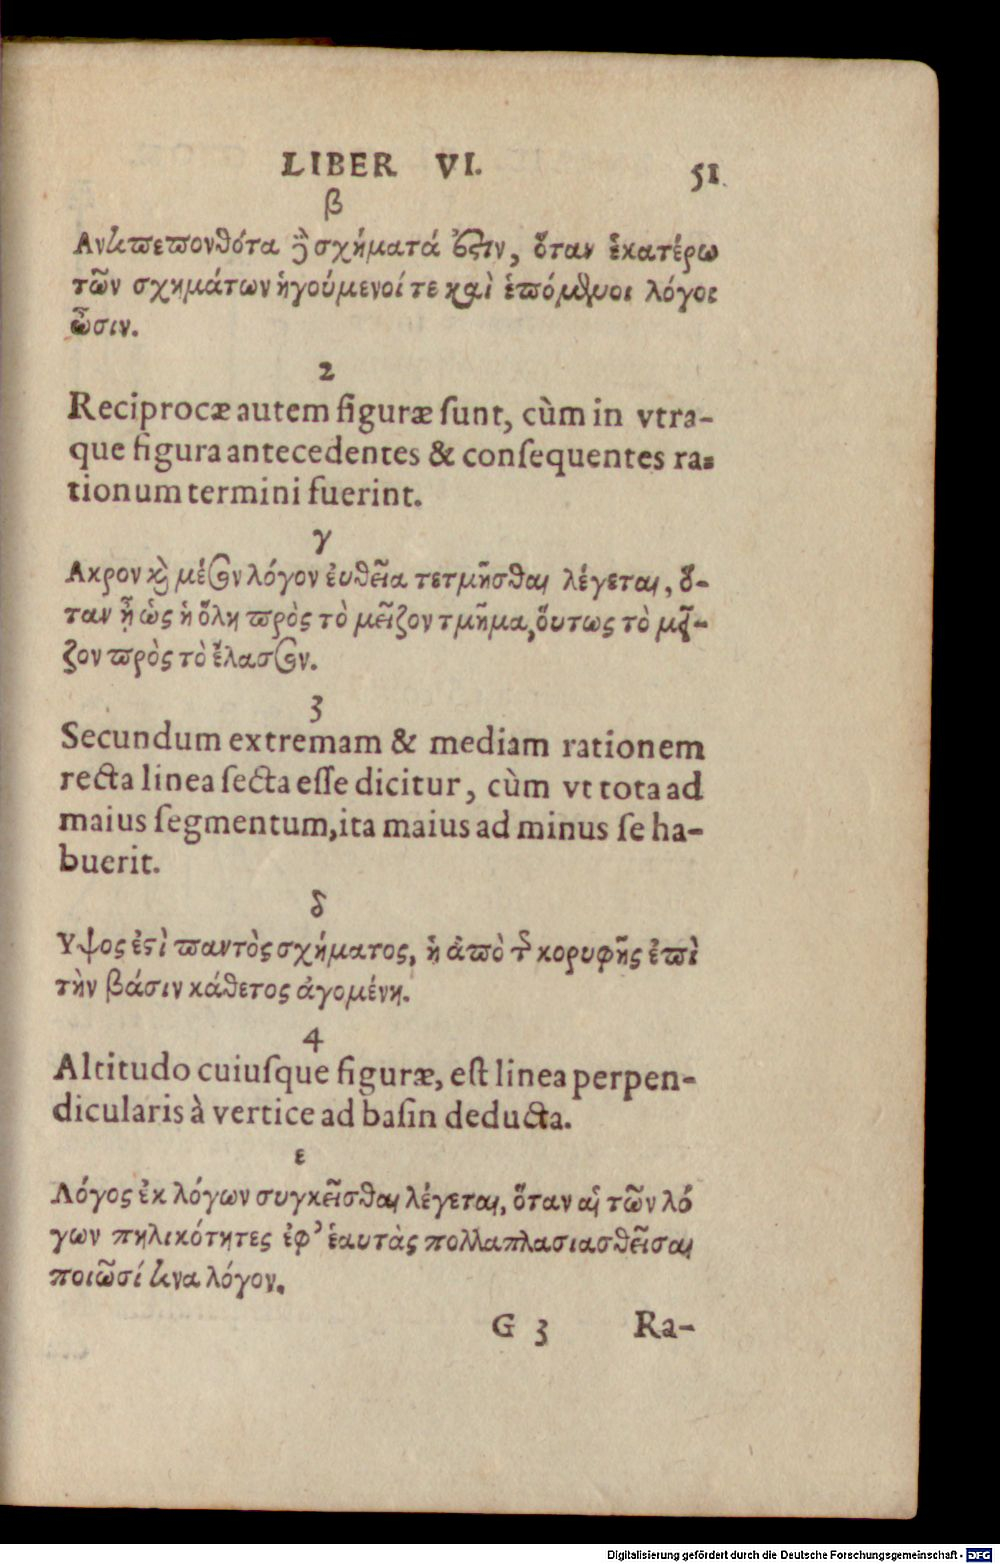 LIBER VI. 51
β
Αντιπεπονθότα δὲ σχήματά ἐστιν, ὅταν ἑκατέρω
τῶν σχημάτων ἡγούμενοί τε καὶ ἑπόμενοι λόγοι
ὦσιν.
2
Reciprocæ autem figuræ ſunt, cùm in vtra-
que figura antecedentes & conſequentes ra-
tionum termini fuerint.
γ
Ακρον καὶ μέσον λόγον ἐυθεῖα τετμῆσθαι λέγεται, ὅ-
ταν ᾖ ὡς ἡ ὅλη πρὸς τὸ μεῖζον τμῆμα, ὅυτως τὸ μεῖ-
ζον πρὸς τὸ ἔλασσον.
3
Secundum extremam & mediam rationem
recta linea ſecta eſſe dicitur, cùm vt tota ad
maius ſegmentum, ita maius ad minus ſe ha-
buerit.
δ
Υψος ἐστὶ παντὸς σχήματος, ἡ ἀπὸ τῆς κορυφῆς ἐπὶ
τὴν βάσιν κάθετος ἀγομένη.
4
Altitudo cuiuſque figuræ, eſt linea perpen-
dicularis à vertice ad baſin deducta.
ε
Λόγος ἐκ λόγων συγκεῖσθαι λέγεται, ὅταν αἱ τῶν λό
γων πηλικότητες ἐφ' ἑαυτὰς πολλαπλασιασθεῖσαι
ποιῶσί τινα λόγον.
G 3 Ra-
Digitalisierung gefördert durch die Deutsche Forschungsgemeinschaft - DFG